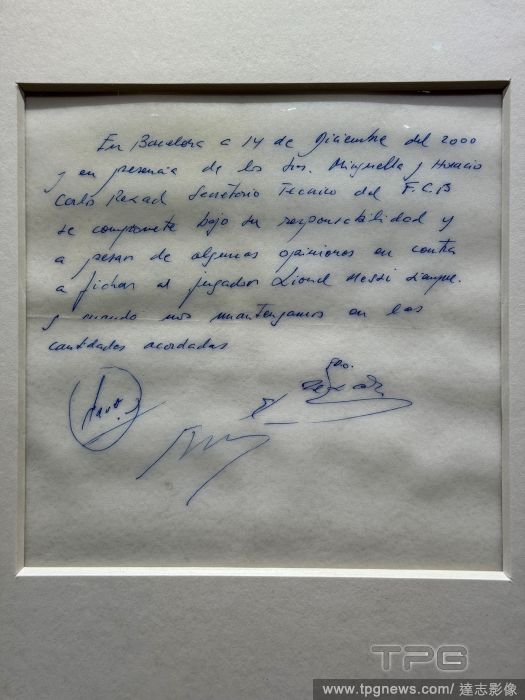 En Barcelona a 14 de Diciembre del 2000
y en presencia de los Srs. Minguella y Horacio
Carlos Rexach Secretario Técnico del F.C.B
se compromete bajo su responsabilidad y
a pesar de algunas opiniones en contra
a fichar al jugador Lionel Messi siempre
y cuando nos mantengamos en las
cantidades acordadas
TPG
www.tpgnews.com/ 達志影像